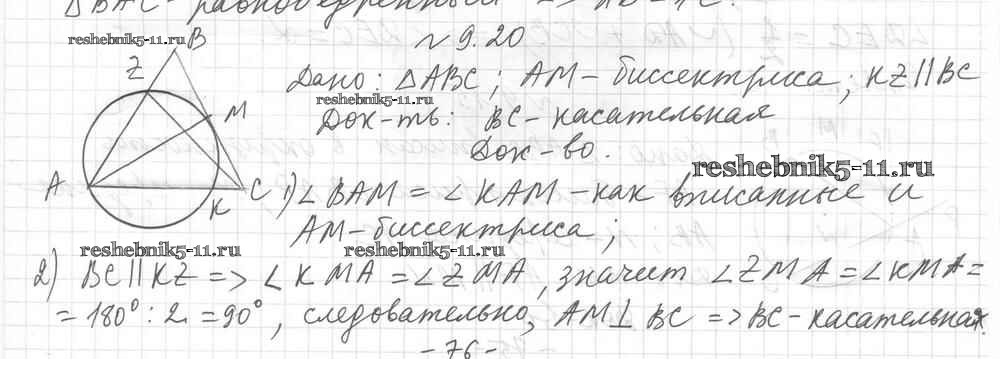 ΔBAC - равнобедренный => AB = AC.
reshebnik5-11.ru
B
№ 9.20
Z
Дано: ΔABC; AM - биссектриса; KZ || BC
reshebnik5-11.ru
M
Док-ть: BC - касательная
Док-во.
reshebnik5-11.ru
A
C
K
1) ∠BAM = ∠KAM - как вписанные и
AM - биссектриса;
reshebnik5-11.ru
reshebnik5-11.ru
2) BC || KZ => ∠KMA = ∠ZMA, значит ∠ZMA = ∠KMA =
= 180° : 2 = 90°, следовательно, AM ⊥ BC => BC - касательная.
- 76 -